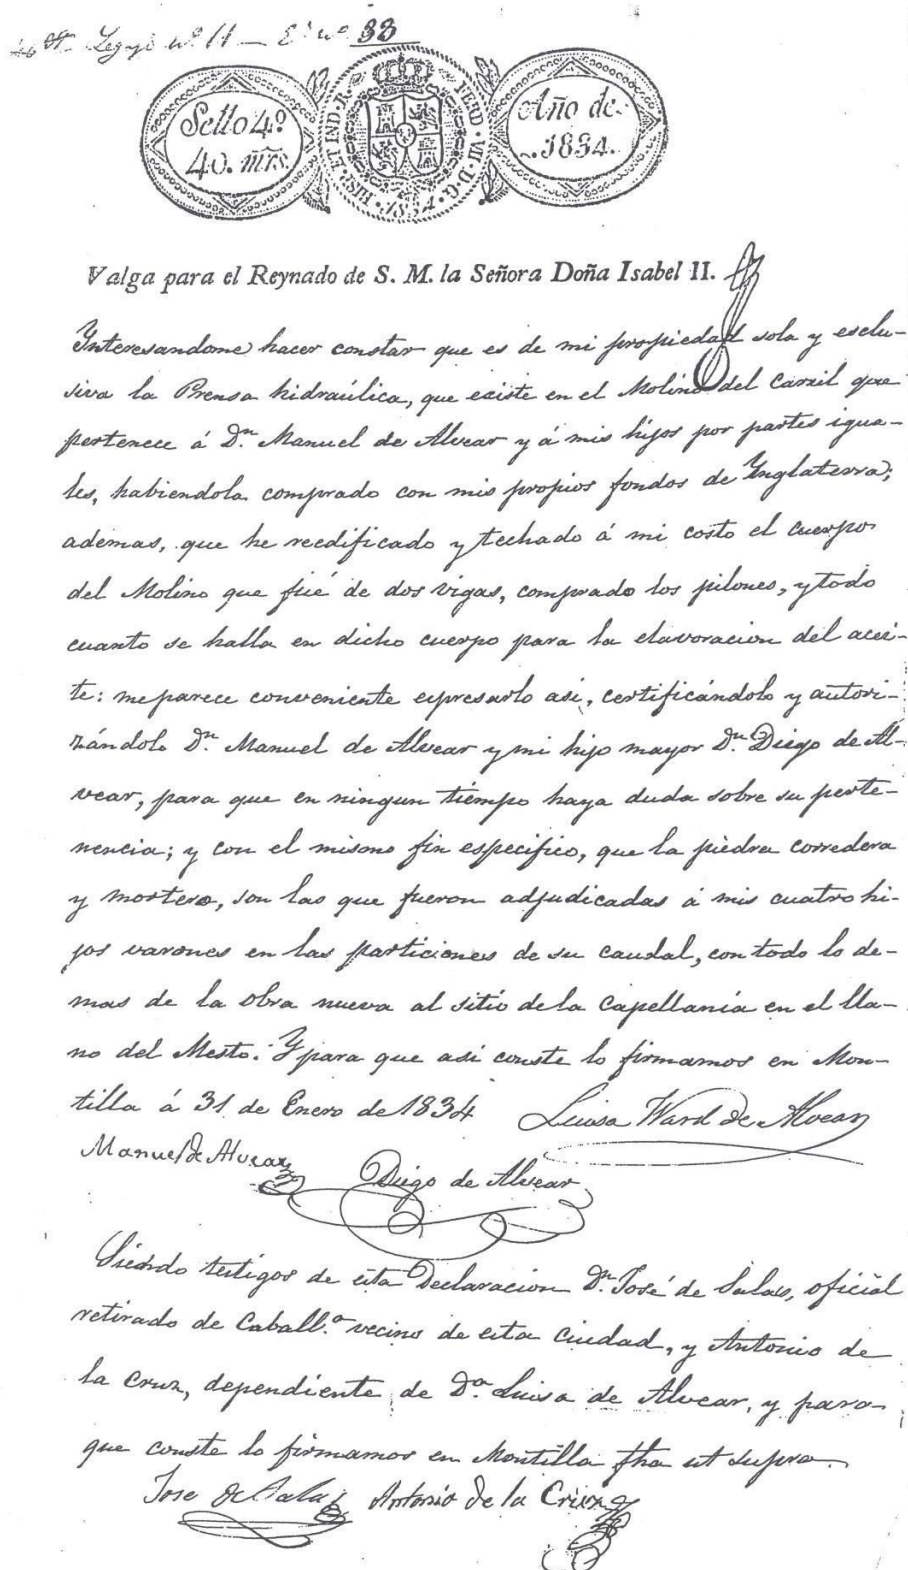 Legajo nº 11 — Eᵗ nº 33
Sello 4º
40. mrs.
HISP. ET IND. R. FERD. VII. D. G.
Año de
1834.
Valga para el Reynado de S. M. la Señora Doña Isabel II.
Interesandome hacer constar que es de mi propiedad sola y esclu-
siva la Prensa hidraúlica, que existe en el Molino del Carril que
pertenece á Dn. Manuel de Alvear y á mis hijos por partes igua-
les, habiendola comprado con mis propios fondos de Ynglaterra;
ademas, que he reedificado y techado á mi costo el cuerpo
del Molino que fué de dos vigas, comprado los pilones, y todo
cuanto se halla en dicho cuerpo para la elavoracion del acei-
te: me parece conveniente espresarlo asi, certificándolo y autori-
zándolo Dn. Manuel de Alvear y mi hijo mayor Dn. Diego de Al-
vear, para que en ningun tiempo haya duda sobre su perte-
nencia; y con el mismo fin especifico, que la piedra corredera
y mortero, son las que fueron adjudicadas á mis cuatro hi-
jos varones en las particiones de su caudal, con todo lo de-
mas de la obra nueva al sitio de la Capellanía en el lla-
no del Mesto. Y para que asi conste lo firmamos en Mon-
tilla á 31 de Enero de 1834
Luisa Ward de Alvear
Manuel de Alvear
Diego de Alvear
Siendo testigos de esta Declaracion Dn. José de Salas, oficial
retirado de Caball.a vecino de esta ciudad, y Antonio de
la Cruz, dependiente de Da. Luisa de Alvear, y para
que conste lo firmamos en Montilla fha ut supra.
Jose de Salas
Antonio de la Cruz